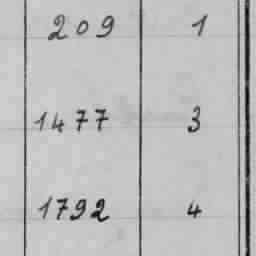 209 1
1477 3
1792 4